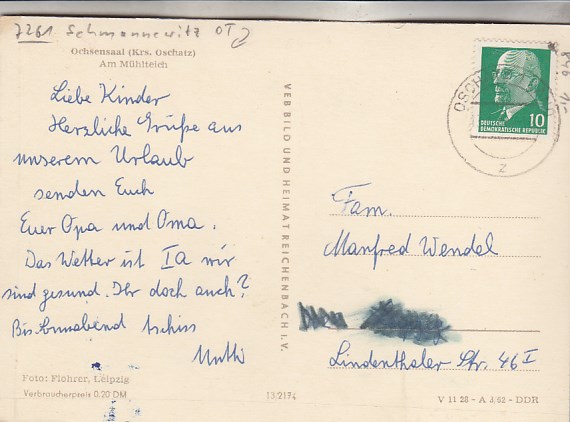 7261 Schmannewitz OT
Ochsensaal (Krs. Oschatz)
Am Mühlteich
Liebe Kinder
Herzliche Grüße aus
unserem Urlaub
senden Euch
Euer Opa und Oma.
Das Wetter ist Ia wir
sind gesund. Ihr doch auch?
Bis Sonnabend tschiss
Mutti
Foto: Flohrer, Leipzig
Verbraucherpreis 0.20 DM
13/2174
VEB BILD UND HEIMAT REICHENBACH I. V.
OSCH
10
DEUTSCHE
DEMOKRATISCHE REPUBLIK
z
Fam.
Manfred Wendel
Lindenthaler Str. 46 I
V 11 28 - A 3/62 - DDR